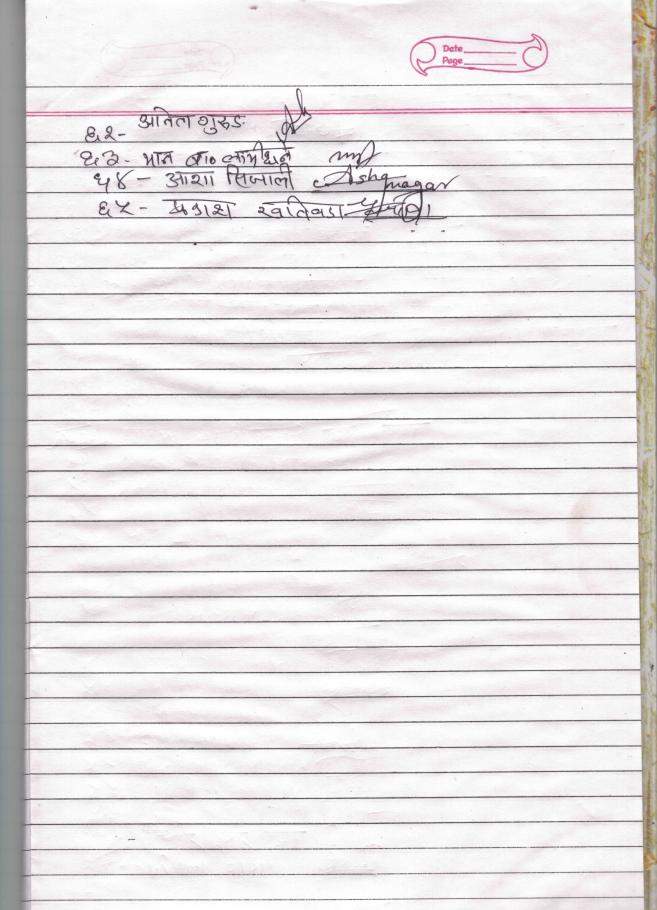 Date
Page
६२- अनिल गुरुङ
६३- मान ब० लामीछाने
६४- आशा सिजाली Asha magar
६५- प्रकाश खतिवडा